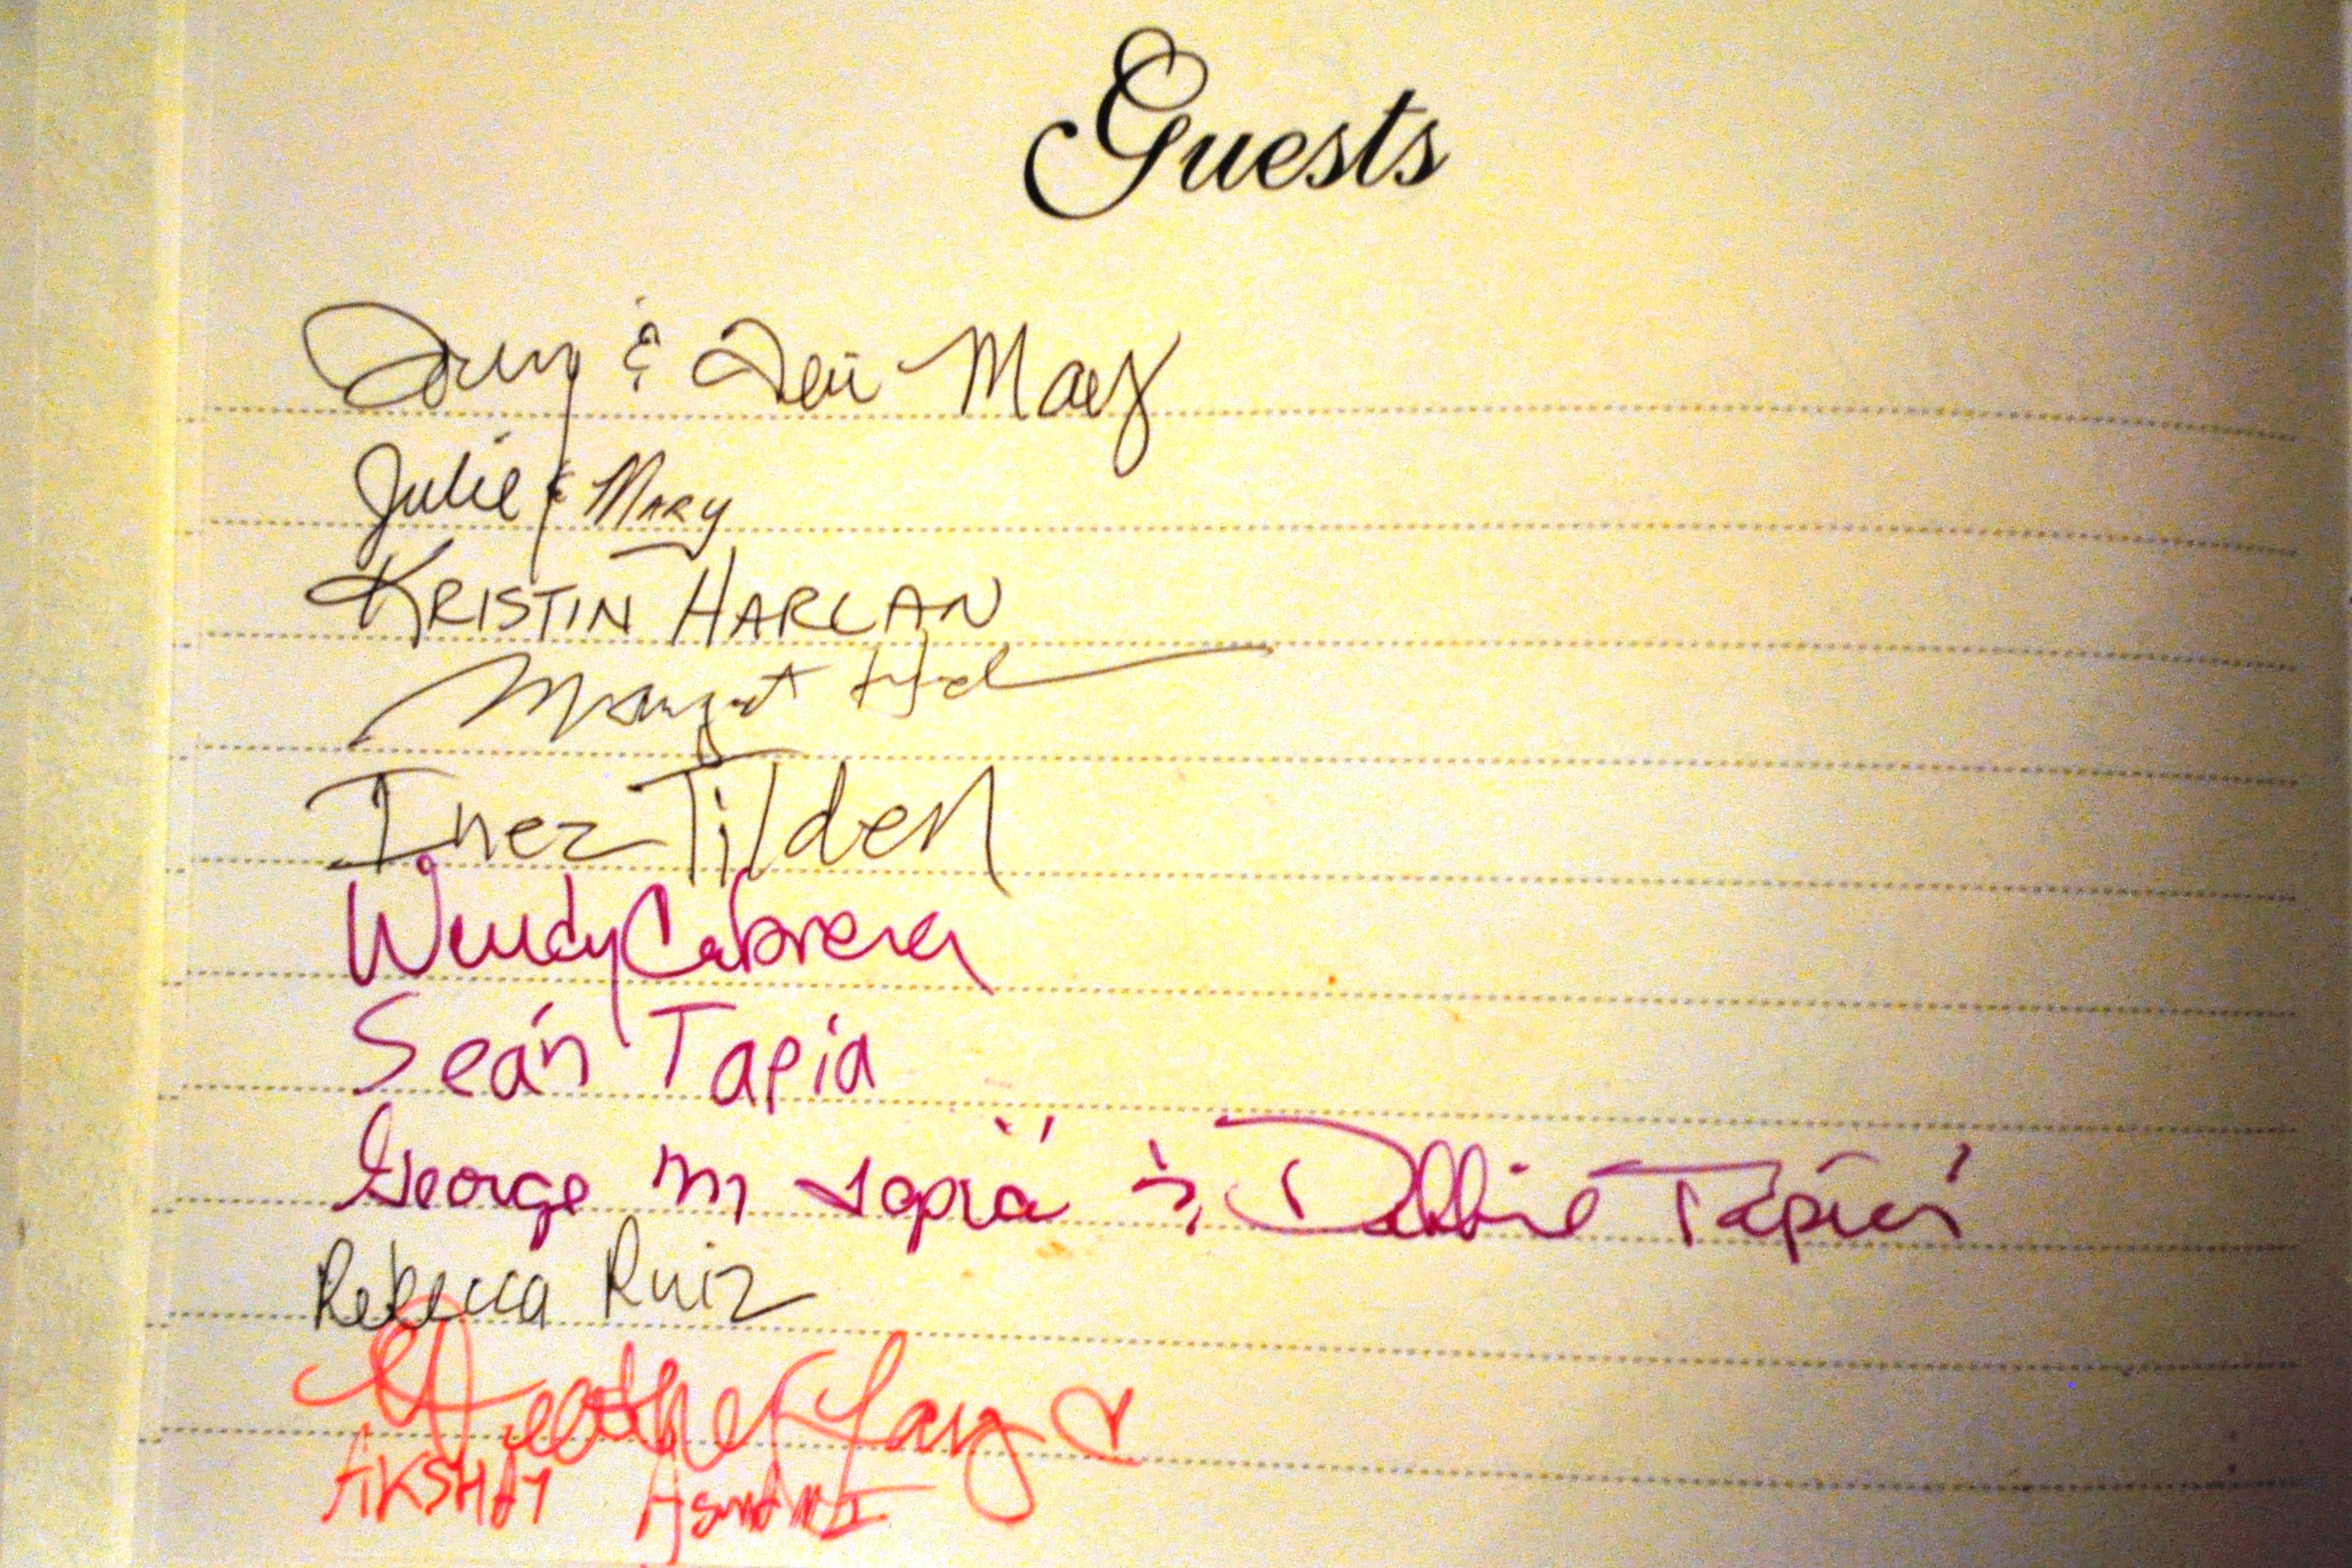 Guests
& Teri May
Julie & MARY
KRISTIN HARLAN
Margaret
Inez Tilden
Wendy Cabrera
Seán Tapia
George M Tapia & Debbie Tapia
Rebecca Ruiz
Heather Lang
AKSHAY